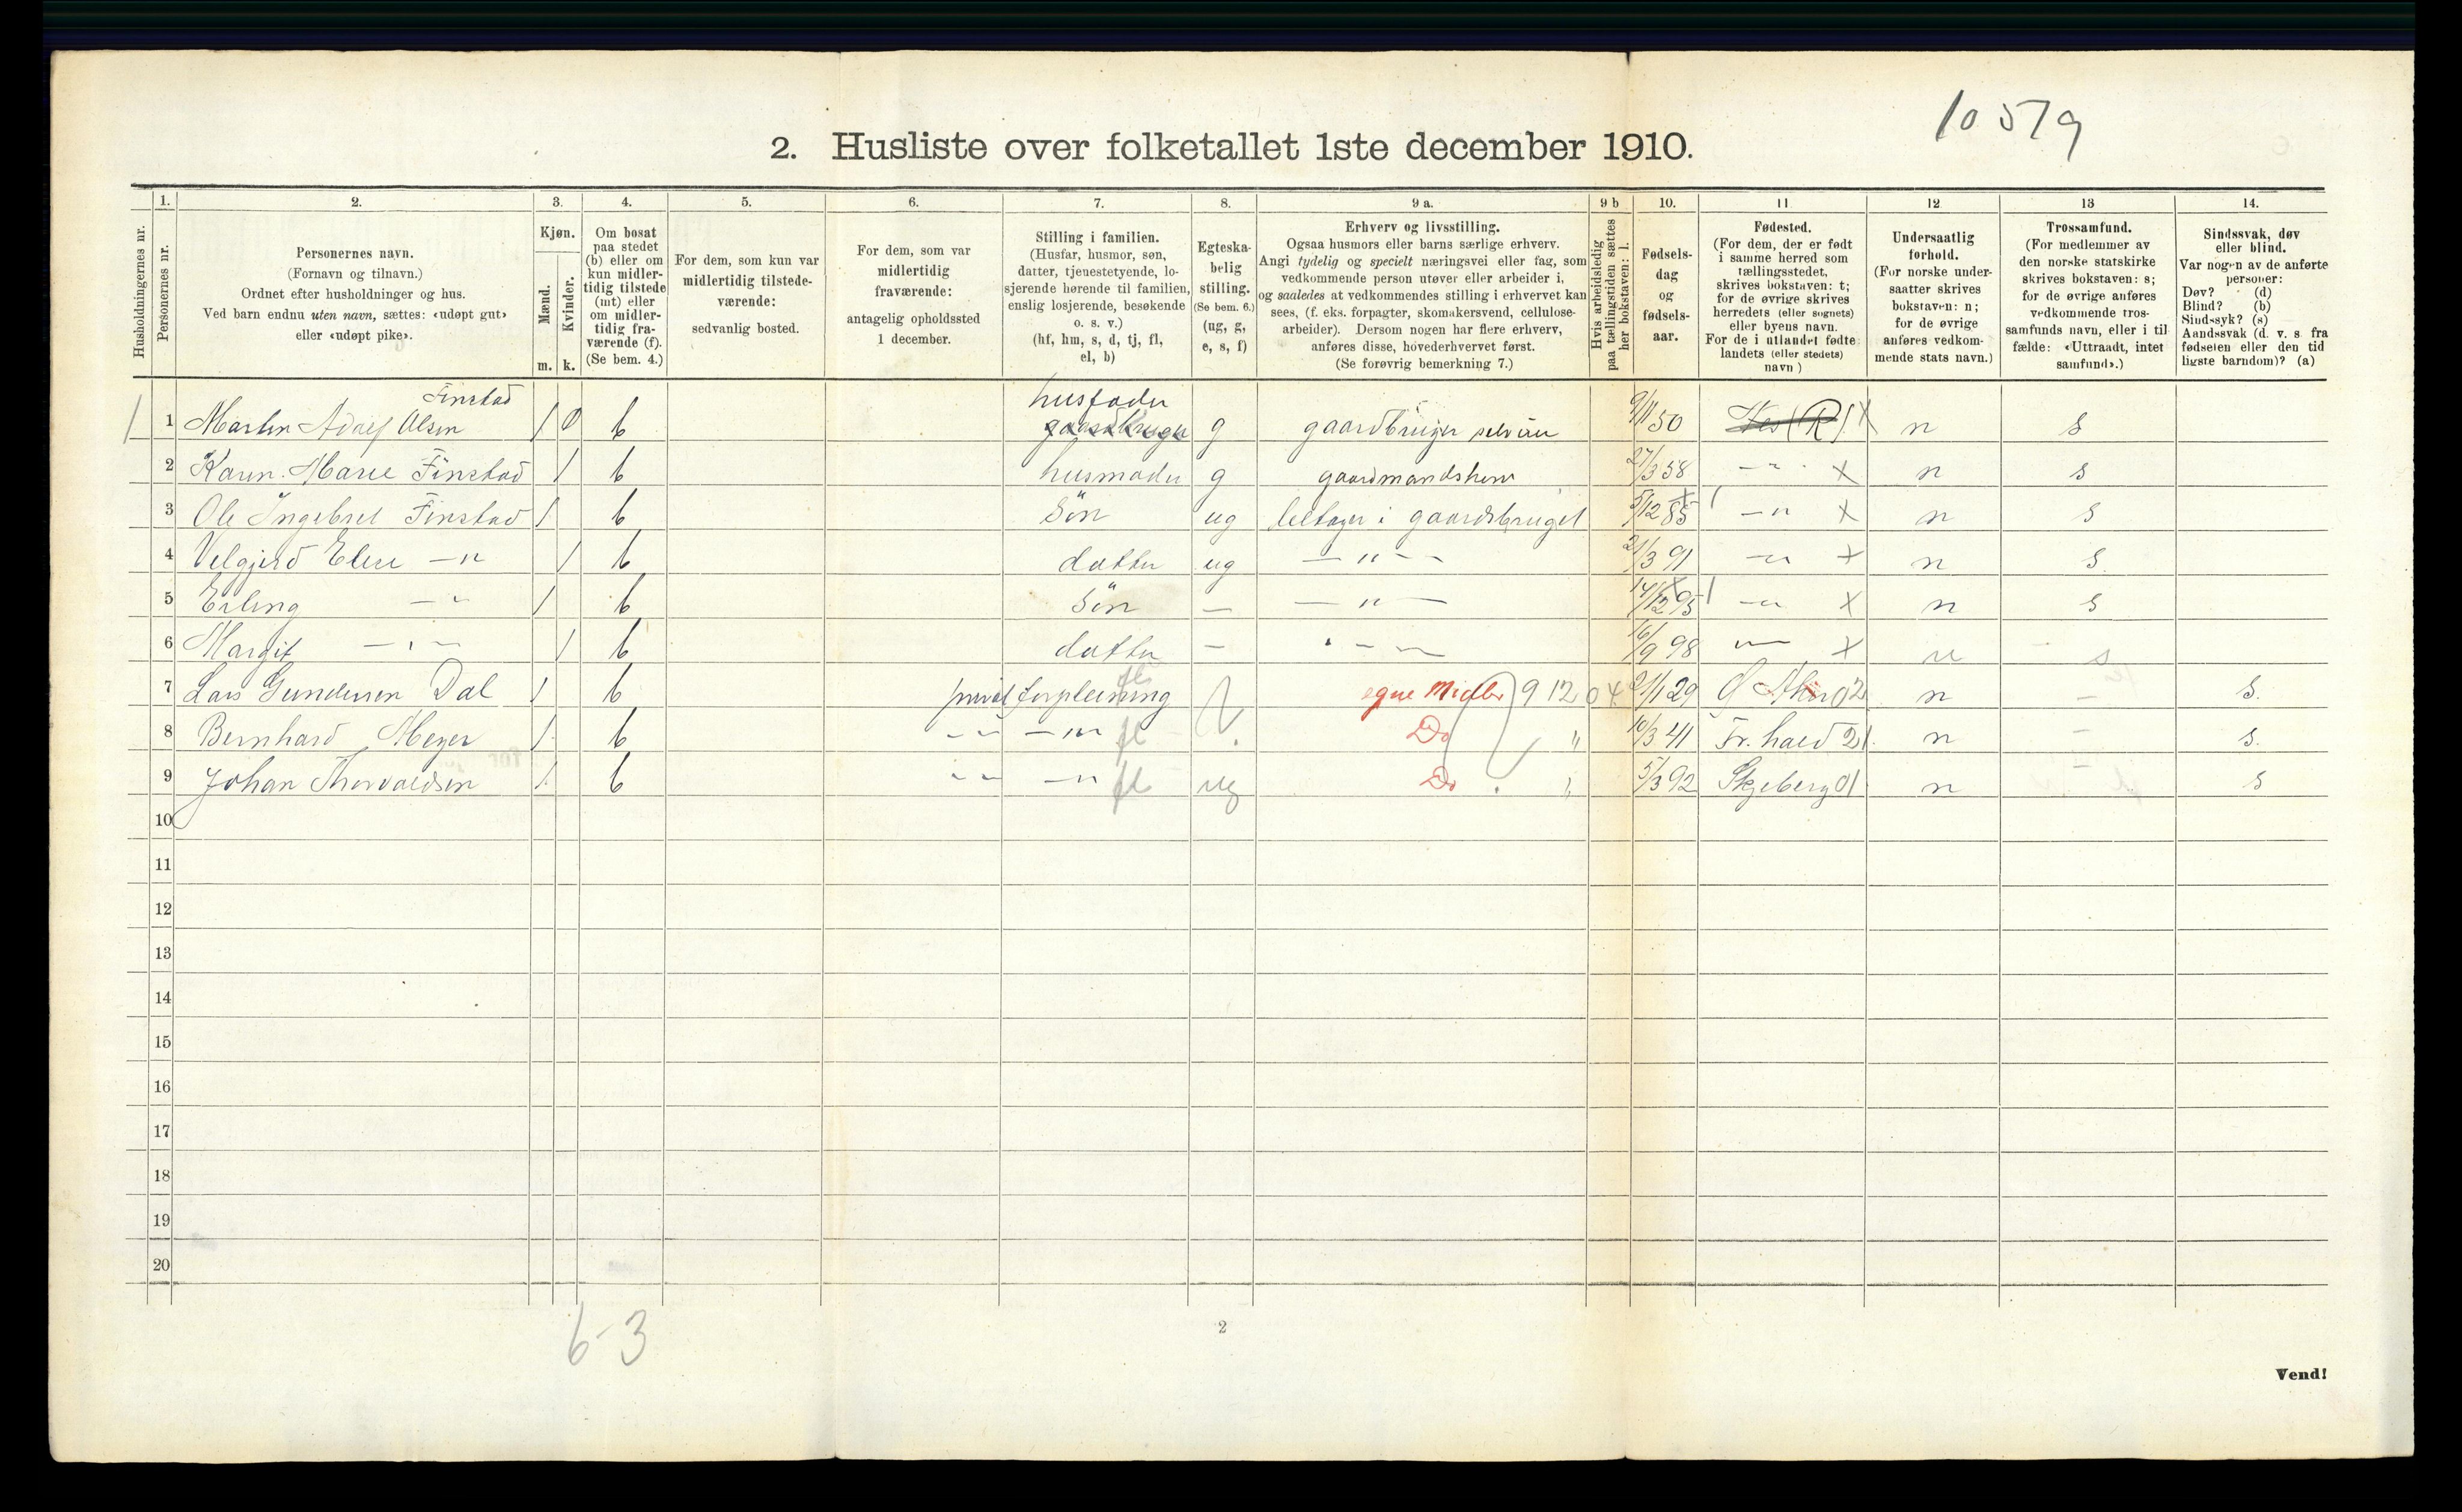 10 579
2. Husliste over folketallet 1ste december 1910.
Husholdningernes nr.
1. Personernes nr.
2. Personernes navn.
(Fornavn og tilnavn.)
Ordnet efter husholdninger og hus.
Ved barn endnu uten navn, sættes: «udøpt gut»
eller «udøpt pike».
3. Kjøn.
Mænd. m.
Kvinder. k.
4. Om bosat
paa stedet
(b) eller om
kun midler-
tidig tilstede
(mt) eller
om midler-
tidig fra-
værende (f).
(Se bem. 4.)
5. For dem, som kun var
midlertidig tilstede-
værende:
sedvanlig bosted.
6. For dem, som var
midlertidig
fraværende:
antagelig opholdssted
1 december.
7. Stilling i familien.
(Husfar, husmor, søn,
datter, tjenestetyende, lo-
sjerende hørende til familien,
enslig losjerende, besøkende
o. s. v.)
(hf, hm, s, d, tj, fl,
el, b)
8. Egteska-
belig
stilling.
(Se bem. 6.)
(ug, g,
e, s, f)
9 a. Erhverv og livsstilling.
Ogsaa husmors eller barns særlige erhverv.
Angi tydelig og specielt næringsvei eller fag, som
vedkommende person utøver eller arbeider i,
og saaledes at vedkommendes stilling i erhvervet kan
sees, (f. eks. forpagter, skomakersvend, cellulose-
arbeider). Dersom nogen har flere erhverv,
anføres disse, hovederhvervet først.
(Se forøvrig bemerkning 7.)
9 b Hvis arbeidsledig
paa tællingstiden sættes
her bokstaven: l.
10. Fødsels-
dag
og
fødsels-
aar.
11 Fødested.
(For dem, der er født
i samme herred som
tællingsstedet,
skrives bokstaven: t;
for de øvrige skrives
herredets (eller sognets)
eller byens navn.
For de i utlandet fødte
landets (eller stedets)
navn )
12 Undersaatlig
forhold.
(For norske under-
saatter skrives
bokstaven: n;
for de øvrige
anføres vedkom-
mende stats navn.)
13 Trossamfund.
(For medlemmer av
den norske statskirke
skrives bokstaven: s;
for de øvrige anføres
vedkommende tros-
samfunds navn, eller i til
fælde: «Uttraadt, intet
samfund».)
14. Sindssvak, døv
eller blind.
Var nogen av de anførte
personer:
Døv? (d)
Blind? (b)
Sindssyk? (s)
Aandssvak (d. v. s. fra
fødselen eller den tid
ligste barndom)? (a)
Finstad husfader
1 1 Martin Adolf Olsen 1 0 b gaardbruger g gaardbruger selveier 9/11 50 Nes (R) X n s
2 Karen Marie Finstad 1 b husmoder g gaardmandskone 27/3 58 - " - X n s
3 Ole Ingebret Finstad 1 b Søn ug deltager i gaardsbruget 5/12 85 - " X n s
4 Velgjerd Elise - " 1 b datter ug - " - 21/3 91 - " X n s
5 Erling - " 1 b Søn - - " - 14/12 95 - " X n s
6 Margit - " - 1 b datter - " - - 16/9 98 - " X n s
7 Lars Gundersen Dal 1 b privat forpleining fl egne Midler 9 12 04 21/1 29 02 n - s.
8 Bernhard Meyer 1 b - " - " - fl Do " 10/3 41 Fr. hald 21 n - s.
9 Johan Thorvaldsen 1 b " - " fl ug Do " 5/3 92 Skjeberg 01 n - s
10
11
12
13
14
15
16
17
18
19
20
6-3
2
Vend!